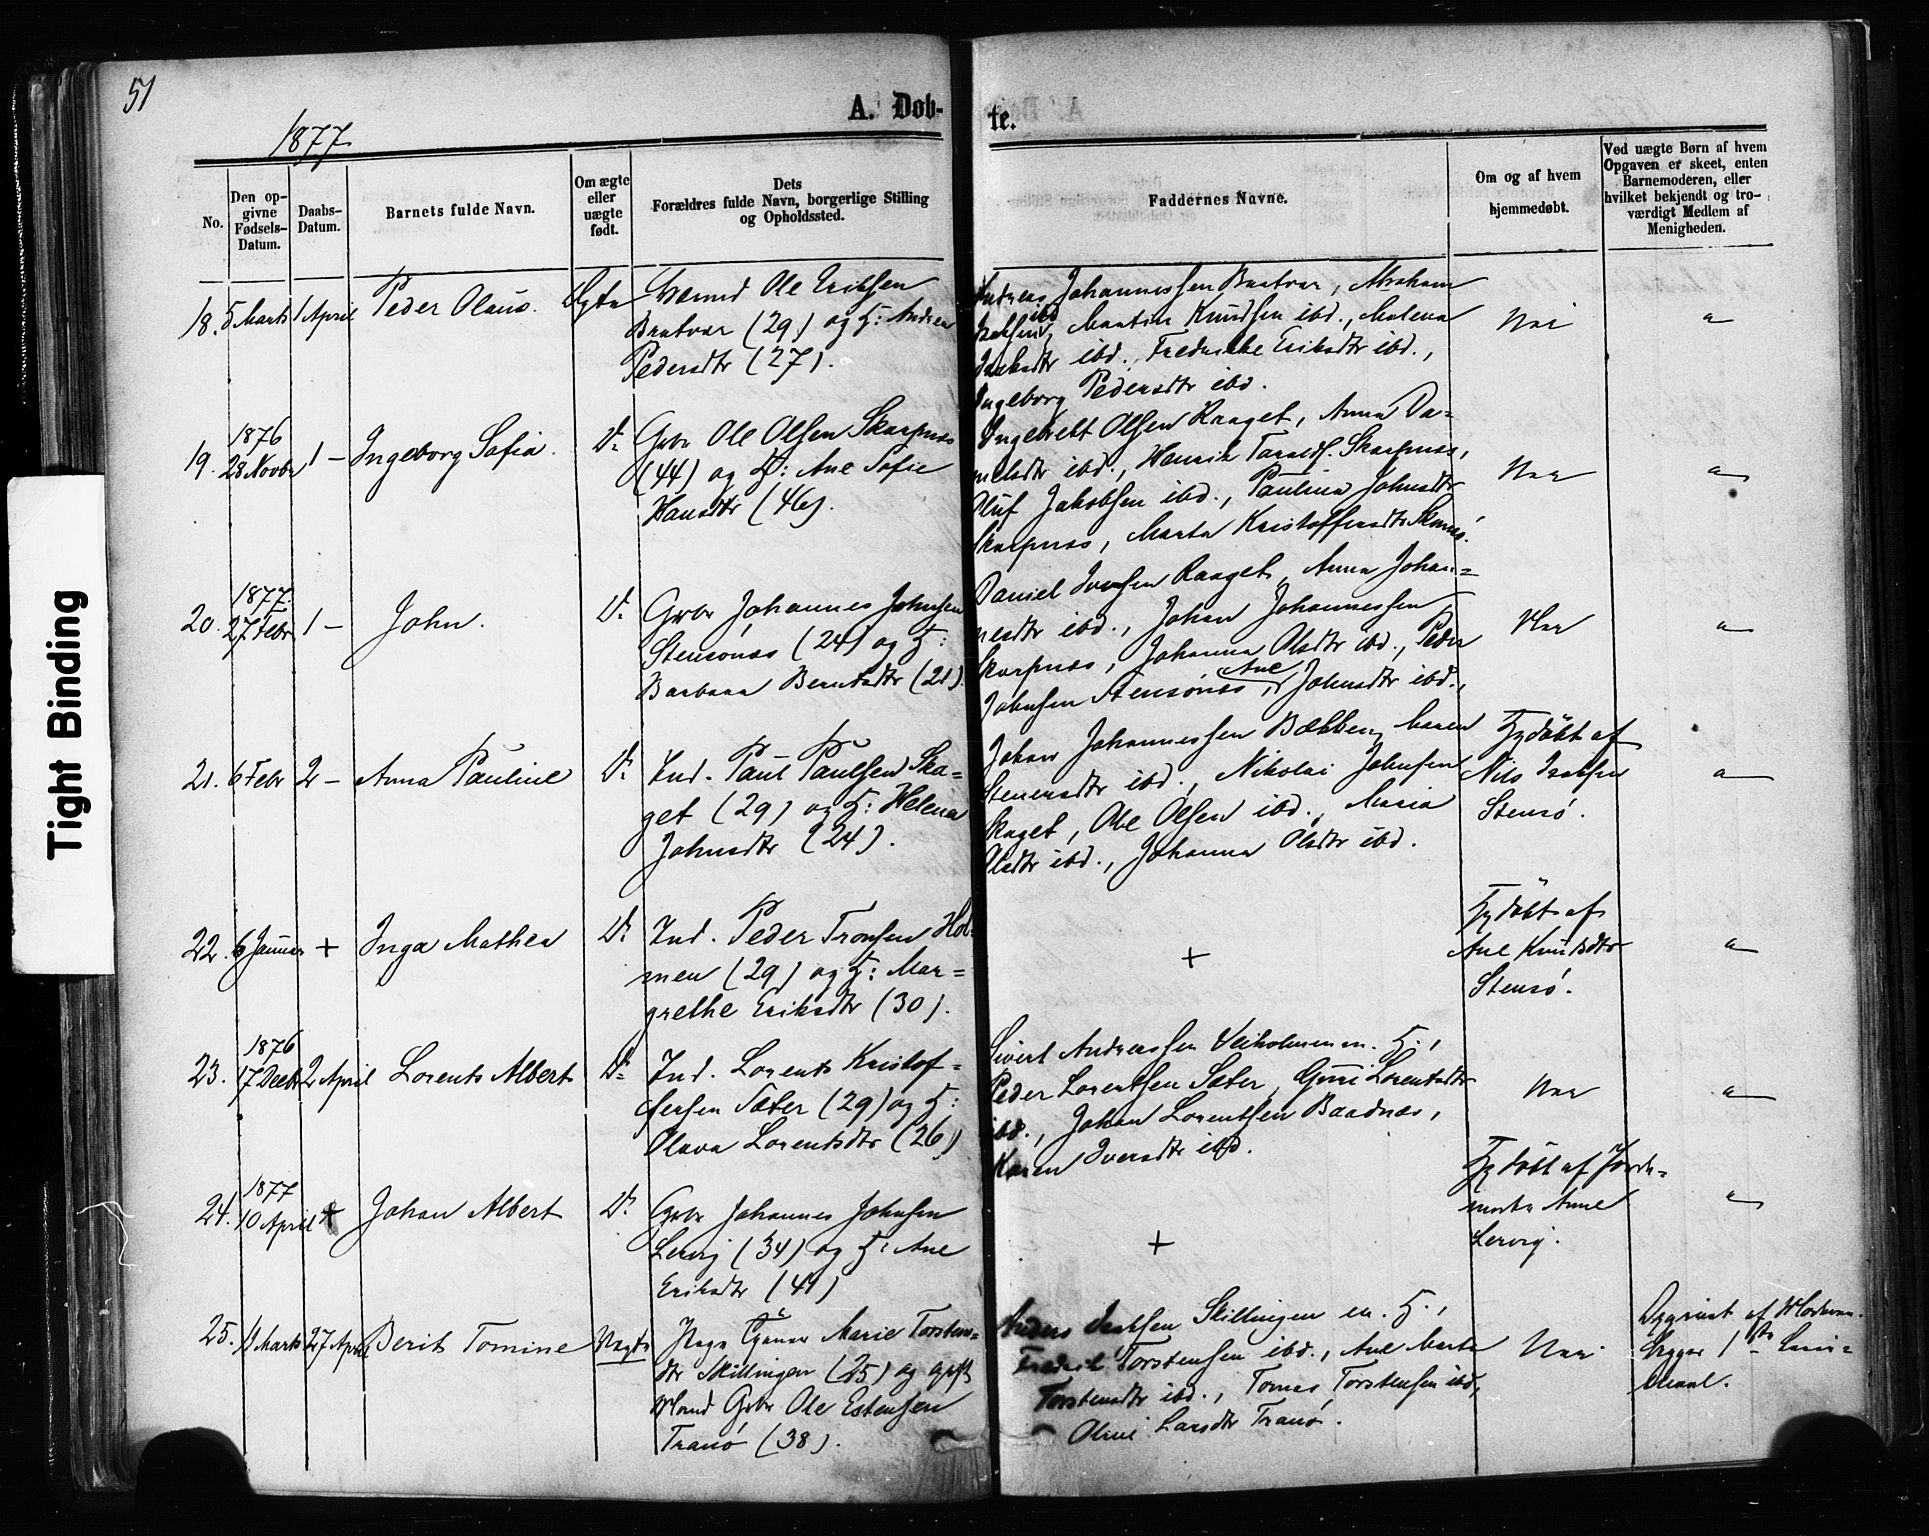 51
1877
A. Døb-
te.
No.
Den op-
givne
Fødsels-
Datum.
Daabs-
Datum.
Barnets fulde Navn.
Om ægte
eller
uægte
født.
Dets
Forældres fulde Navn, borgerlige Stilling
og Opholdssted.
Faddernes Navne.
Om og af hvem
hjemmedøbt.
Ved uægte Børn af hvem
Opgaven er skeet, enten
Barnemoderen, eller
hvilket bekjendt og tro-
værdigt Medlem af
Menigheden.
18. 5 Marts 1 April Peder Olaus. Ægte
Ole Eriksen
Bratvær (29) og H: Andrea
Pedersdtr (27).
Andreas Johannessen Bratvær, Abraham
Isaksen ibd, Martin Knudsen ibd., Malena
Isaksdtr ibd., Fredrikke Eriksdtr ibd.,
Ingeborg Pedersdtr ibd.
Nei
"
19. 1876
28 Novbr 1 – Ingeborg Sofia. Do
Gbr Ole Olsen Skarpnæs
(44) og H: Ane Sofie
Hansdtr (46).
Ingebrett Olsen Raaget, Anna Da=
nielsdtr ibd., Henrik Skarpnæs,
Oluf Jakobsen ibd., Paulina Johnsdtr
Skarpnæs, Marta Kristoffersdtr
Nei
"
20. 1877
27 Febr 1 – John. Do
Gbr Johannes Johnsen
Stensönæs (24) og H:
Barbara Berntsdtr (21).
Daniel Iversen Raaget, Anna Johan=
nesdtr ibd., Johan Johannessen
Skarpnæs, Johanna Olsdtr ibd., Peder
Johnsen Stensönæs, Ane Johnsdtr ibd.,
Nei
"
21. 6 Febr 2 – Anna Pauline Do
Ind. Paul Paulsen Ska=
get (29) og H: Helena
Johnsdtr (24).
Johan Johannessen Bækken, Maren
Stenersdtr ibd., Nikolai Johnsen
Skaget, Ole Olsen ibd., Maria
Olsdtr ibd., Johanna Olsdtr ibd.
Hjdöbt af
Nils Isaksen
Stensö.
"
22. 6 Januar + Inga Mathea Do
Ind. Peder Tronsen Hol=
men (29) og H: Mar=
grethe Eriksdtr (30).
+
Hjdöbt af
Ane Knudsdtr
Stensö.
"
23. 1876
17 Decbr 2 April Lorents Albert Do
Ind. Lorents Kristof=
fersen Sæter (29) og H:
Olava Lorentsdtr (26)
Sivert Andreassen Veiholmen m. H.,
Peder Lorentsen Sæter, Guri Lorentsdtr
ibd., Johan Lorentsen Baadnæs,
Karen Iversdtr ibd.
Nei
"
24. 1877
10 April + Johan Albert Do
Gbr Johannes Johnsen
Lervig (34) og H: Ane
Eriksdtr (41)
+
Hjdöbt af Jorde=
moder Anne
Lervig.
"
25. 11 Marts 27 April Berit Tomine Uægte
Pige Marie Torstens=
dtr Skillingen (25) og gift
Mand Gbr Ole Estensen
Tranö (38).
Anders Isaksen Skillingen m. H.,
Fredrik Torstensen ibd., Ane Marta
Torstensdtr ibd., Tomas Torstensen ibd,
Oline Larsdtr Tranö.
Nei
Opgivet af Moderen.
Begges 1ste Leier=
maal.
Tight Binding